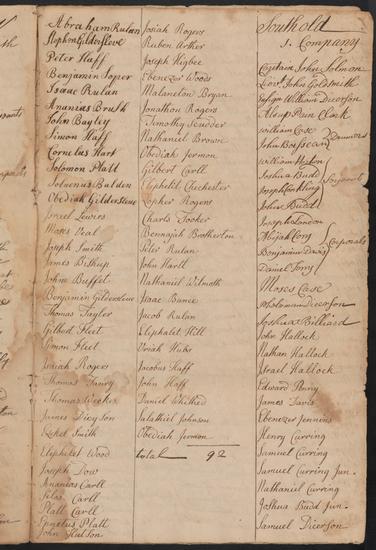 Abraham Rulan
Stephen Gildersleve
Peter Haff
Benjamin Soper
Isaac Rulan
Ananias Brush
John Bayley
Simon Haff
Cornelus Hart
Solomon Platt
Bulden
Obediah Gildersleve
Israel Lewies
Moses Veal
Joseph Smith
James Bishup
John Buffet
Benjamin Gildersleve
Thomas Tayler
Gilbert Fleet
Simon Fleet
Isaiah Rogers
Thomas
Thomas Weekes
James Dicyson
Ezekel Smith
Elephelet Wood
Joseph Dow
Ananias Carll
Silas Carll
Platt Carll
Epnetus Platt
John Hutson
Josiah Rogers
Ruben Arther
Joseph Higbee
Ebenezer Woods
Malancton Bryan
Jonathon Rogers
Timothy Scuder
Nathaniel Brown
Obediah Jermon
Gilbert Carll
Eliphelit Chichester
Rogers
Charls Tooker
Bennajah Brotherton
Peter Rulan
John Hartt
Nathaniel Wilmoth
Isaac Bunce
Jacob Rulan
Eliphalet Hill
Uriah Hubs
Jacobus Haff
John Haff
Daniel Whithed
Salathiel Johnson
Obediah Jermon
total 92
Southold
1. Company
Captain John Solman
Levt John Goldsmith
Insign William Dicerson
Clark
William Case
John Bosseau
Drumers
William Horton
Joshua Budd
Joseph Conkling
John Budd
Serjeants
Joseph Landon
Abijah Cory
Benjamin Davis
Daniel Tory
Corporals
Moses Case
Dicerson
Joshua Billiard
John Hallock
Nathan Hallock
Israel Hallock
Edward Penny
James Davis
Ebenezer Jennins
Henry Curring
Samuel Curring
Samuel Curring Jun.
Nathaniel Curring
Joshua Budd Jun
Samuel Dicerson